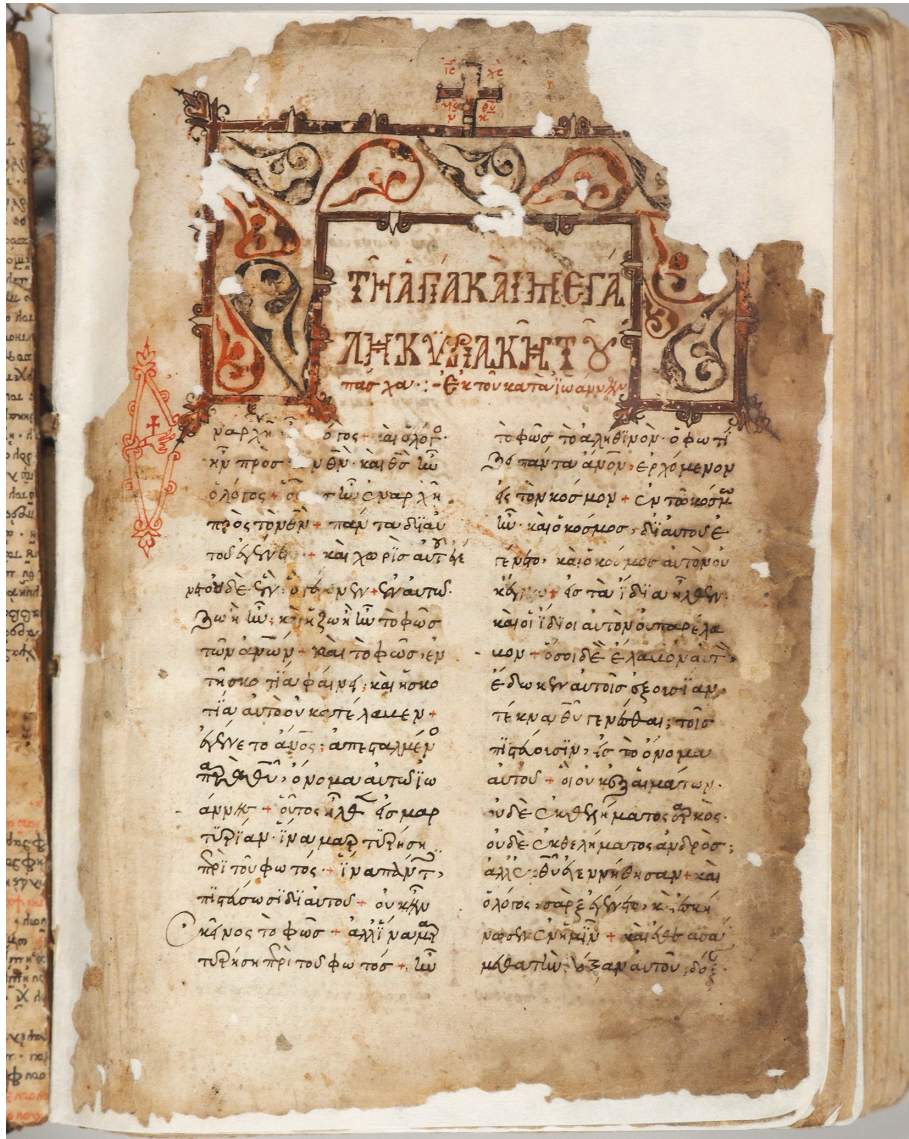 ΙC ΧC
ΤΗ ἉΓΊΑ ΚΑῚ ΜΕΓΆ
ΛΗ ΚΥΡΙΑΚΗ ΤΟΥ
πάσχα · ἐκ τοῦ κατὰ ἰωάννην
ἐναρχῆ λόγος + καὶ ὁ λόγος
ἦν πρὸς θν · καὶ θς ἦν
ὁ λόγος + οὗτος ἦν ἐν ἀρχῆ
πρὸς τὸν θν + πάντα δϊ αὐ
τοῦ ἐγένετο + καὶ χωρὶς αὐτοῦ ἐγέ
νετο οὐδὲ ἓν · ὃ γέγονεν + ἐν αὐτῶ
ζωὴ ἦν · καὶ ἡ ζωὴ ἦν τὸ φῶς
τῶν ἀνων + καὶ τὸ φῶς, ἐν
τῆ σκοτία φαίνει · καὶ ἡ σκο
τία αὐτὸ οὐ κατέλαβεν +
ἐγένετο ἄνος · ἀπεσταλμένος
παρὰ θυ, ὄνομα αὐτῶ ἰω
άννης + οὗτος ἦλθεν εἰς μαρ
τυρίαν · ἵνα μαρτυρήση
περὶ τοῦ φωτός + ἵνα πάντες
πιστεύσωσι δϊ αὐτοῦ + οὐκ ἦν
ἐκεῖνος τὸ φῶς + ἀλλ ἵνα μαρ
τυρήση περὶ τοῦ φωτός + ἦν
τὸ φῶς τὸ ἀληθινόν · ὃ φωτί
ζει πάντα ἄνον, ἐρχόμενον
εἰς τὸν κόσμον + ἐν τῶ κόσμω
ἦν · καὶ ὁ κόσμος, δϊ αὐτοῦ ἐ
γένετο, καὶ ὁ κόσμος αὐτὸν οὐ
κ ἔγνω + εἰς τὰ ἴδϊα ἦλθεν ·
καὶ οἱ ἴδϊοι αὐτὸν οὐ παρέλα
βον + ὅσοι δὲ ἔλαβον αὐτὸν,
ἔδωκεν αὐτοῖς ἐξουσίαν,
τέκνα θυ γενέσθαι · τοῖς
πιστεύουσϊν, εἰς τὸ ὄνομα
αὐτοῦ + οἳ οὐκ ἐξ αἱμάτων ·
οὐδὲ ἐκ θελήματος σαρκός ·
οὐδὲ ἐκ θελήματος ἀνδρός ·
ἀλλ ἐκ θυ ἐγεννήθησαν + καὶ
ὁ λόγος, σὰρξ ἐγένετο, κ ἐσκή
νωσεν ἐν ἡμῖν + καὶ ἐθεασά
μεθα τὴν δόξαν αὐτοῦ, δόξ